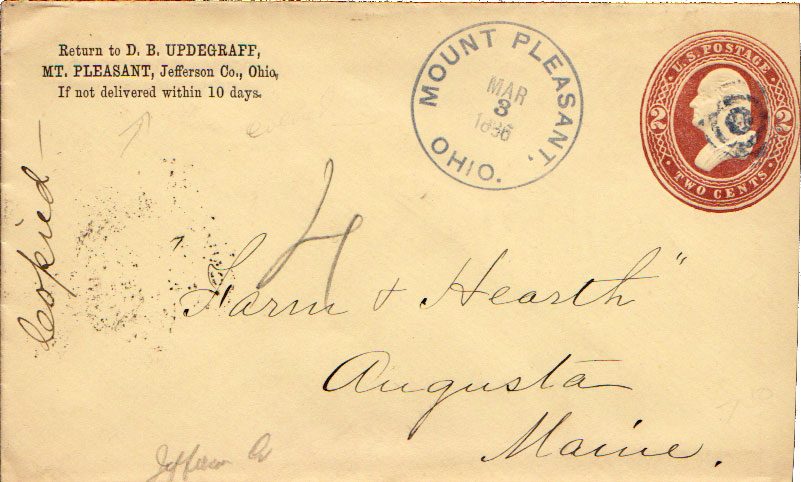 Return to D. B. UPDEGRAFF,
MT. PLEASANT, Jefferson Co., Ohio,
If not delivered within 10 days.
MOUNT PLEASANT, OHIO.
MAR
3
1886
U.S. POSTAGE
2 2
TWO CENTS
Copied —
4
"Farm & Hearth"
Augusta
Maine.
Jefferson Co